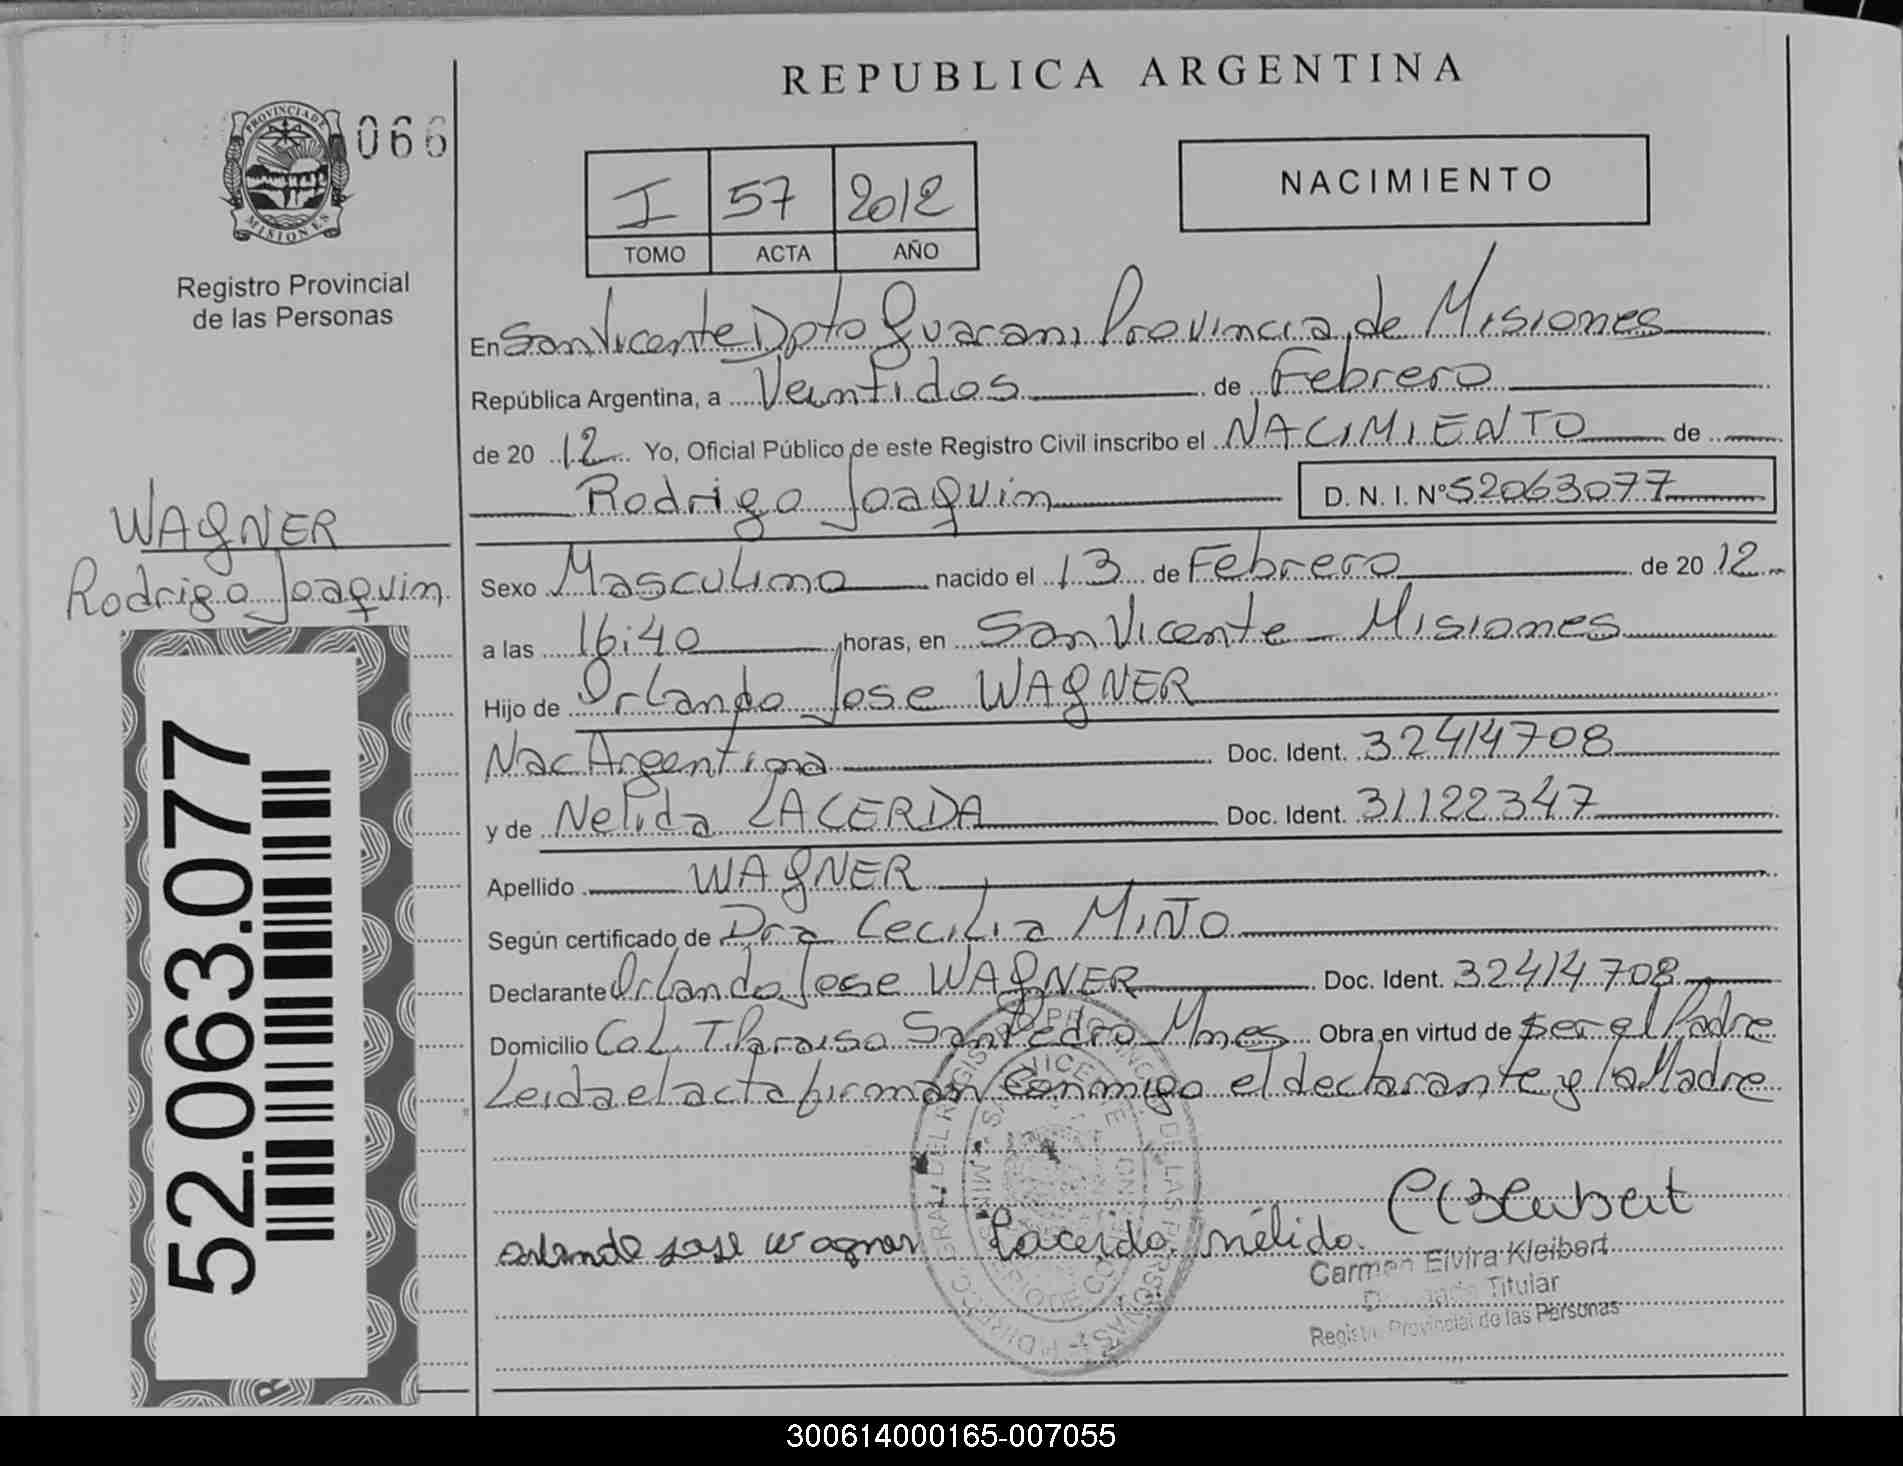 REPUBLICA ARGENTINA
PROVINCIA DE
MISIONES
066
Registro Provincial
de las Personas
I 57 2012
TOMO ACTA AÑO
NACIMIENTO
En San Vicente Dpto Guarani Provincia de Misiones
República Argentina, a Veintidos de Febrero
de 20 12 Yo, Oficial Público de este Registro Civil inscribo el NACIMIENTO de
Rodrigo Joaquin D. N. I. Nº 52063077
WAGNER
Rodrigo Joaquin
52.063.077
Sexo Masculino nacido el 13 de Febrero de 20 12
a las 16:40 horas, en San Vicente - Misiones
Hijo de Orlando Jose WAGNER
Nac Argentina Doc. Ident. 32414708
y de Nelida LACERDA Doc. Ident. 31122347
Apellido WAGNER
Según certificado de Dra Cecilia MIÑO
Declarante Orlando Jose WAGNER Doc. Ident. 32414708
Domicilio Col. T. Paraiso San Pedro Mnes Obra en virtud de ser el Padre
Leida el acta firman conmigo el declarante y la Madre
orlando jose wagner Lacerda nélida
Carmen Elvira Kleibert
Titular
Registro Provincial de las Personas
300614000165-007055